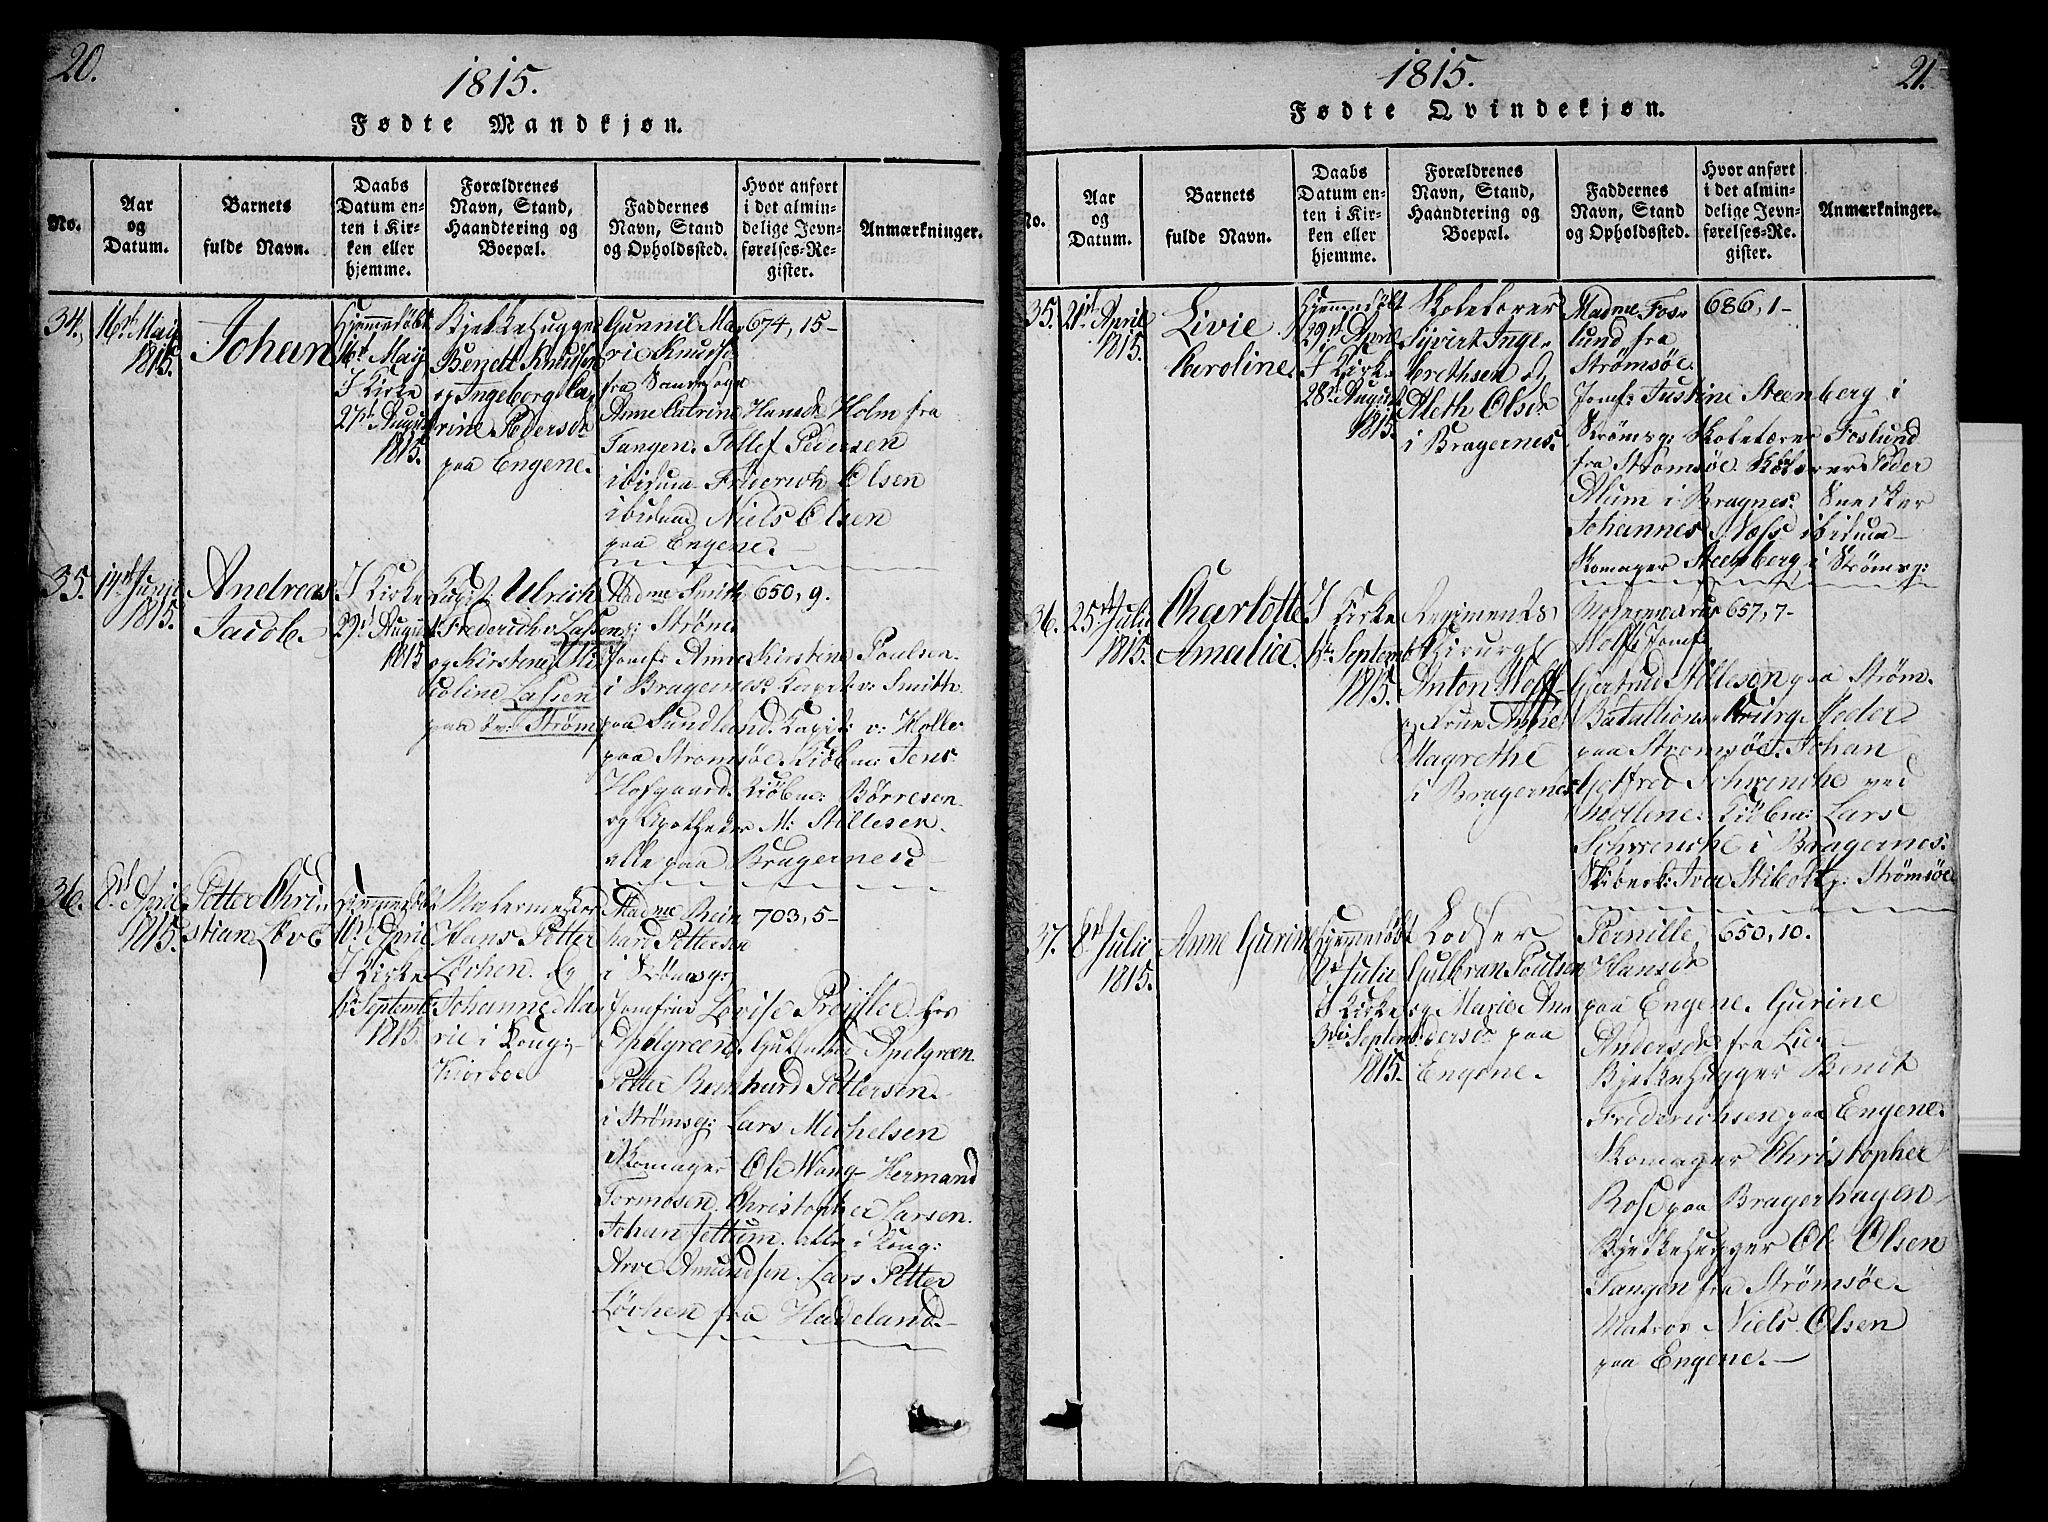 20.
1815.
Fødte Mandkjøn.
No.
Aar
og
Datum.
Barnets
fulde Navn.
Daabs
Datum en-
ten i Kir-
ken eller
hjemme.
Forældrenes
Navn, Stand,
Haandtering og
Boepæl.
Faddernes
Navn, Stand
og Opholdssted.
Hvor anført
i det almin-
delige Jevn-
førelses-Re-
gister.
Anmærkninger.
34.
16de May
1815.
Johan
Hjemmedöbt
16de May
I Kirke
27de August
1815.
Bjelkehugger
Berrett Knudsen
og Ingeborg Ca
rine Pedersd
paa Engene.
Gunnil Ma
rie Knudsd
fra Sandesogn
Anne Catrine Hansd Holm fra
Tangen. Tollef Pedersen
ibidum Friderich Olsen
ibidum, Niels Olsen
paa Engene.
674, 15-
35.
14de Junii
1815.
Andreas
Jacob.
I Kirke
29de August
1815
Capit: Ulrich
Frederich v: Lassen
og Kirstene
Lassen
paa Strøm
Madme Smith
Strøms
Jomf: Anne Kirstene Poulsen
i Bragernes: Capit: v: Smith
paa Sundland. Capit: v: Holler
paa Strømsöe. Kiöbm: Jens
Hofgaard. Kiöbm: Börresen
og Apotheder M: Stillesen.
alle paa Bragernes.
650, 9.
36.
8de April
1815.
Petter Chri
stian Love
Hjemmedöbt
10de April
I Kirke
1ste Septembr
1815.
Hans Petter
Löchen. og
Johanne Ma
rie i Kong:
Madme Rein
hard Pettersen
i Strömsg:
Jomfrue Lovise hos
Apelgreen. Apelgreen
Petter Reinhard Pettersen.
i Strømsg: Lars Michelsen
Skomager Ole Wang- Hermand
Tormosen. Christopher Larsen.
Johan alle i Kong:
Arve Amundsen. Lars Petter
Löchen fra Hadeland.
703, 5-
21.
1815.
Fødte Qvindekjøn.
No.
Aar
og
Datum.
Barnets
fulde Navn.
Daabs
Datum en-
ten i Kir-
ken eller
hjemme.
Forældrenes
Navn, Stand,
Haandtering og
Boepæl.
Faddernes
Navn, Stand
og Opholdssted.
Hvor anført
i det almin-
delige Jevn-
førelses-Re-
gister.
Anmærkninger.
35.
21de April
1815.
Livie
Caroline.
Hjemmedöbt
29de April
I Kirke
28de August
1815.
Skolelærer
Syvert Inge-
brethsen og
Aleth Olsd
i Bragernes.
Madme Fos-
lund fra
Strømsöe.
Jomf: Justine Steenberg i
Strømsg: Skolelærer Foslund
fra Strømsöe. Peder
Alum i Bragnes: Snedker
Johannes Næss ibidum
Skomager Steenberg i Strømsg:
686, 1-
36.
25de Julii
1815.
Charlotte
Amalia.
I Kirke
1ste Septembr
1815.
Regiments
Chirurg
Anton Hoff
og Frue Anne
Magrethe
i Bragernes
Hoff. Jomf:
Gjertrud Stillesen paa Strøm.
Batallions Kirurg Meder
paa Strømsöe. Johan
Gotfred Schwencke ved
Möllene: Kiöbm: Lars
Schwencke i Bragernes:
Iver Stibolt p: Strømsöe
657, 7-
37.
8de Julii
1815.
Anne Gurine
Hjemmedöbt
Julii
I Kirke
3die Septembr
1815.
Lodser
Gulbran Poulsen
og Marie An
dersd paa
Engene.
Pernille
Hansd
paa Engene. Gurine
Andersd fra Lier
Bjelkehugger Bendt
Frederichsen paa Engene.
Skomager Christopher
Rose paa Bragerhagen
Bjelkehugger Ole Olsen
Tangen fra Strømsöe.
Matros Niels Olsen
paa Engene.
650, 10.